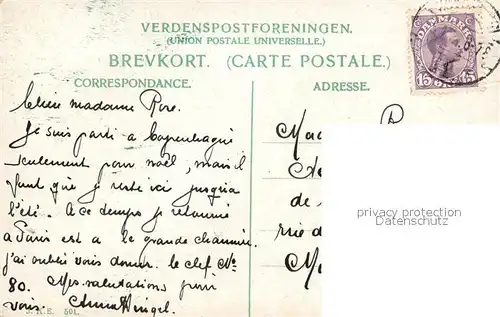 VERDENSPOSTFORENINGEN.
(UNION POSTALE UNIVERSELLE.)
BREVKORT. (CARTE POSTALE.)
CORRESPONDANCE.
ADRESSE.
DANMARK
15 ØRE 15
Chère madame Rose.
Je suis parti a Copenhague
seulement pour noël, mais il
faut que je reste ici jusqu'a
l'été. A ce temps je retourne
a Paris est a le grande chaumière
j'ai oublié vous donner le clef No
80. Mes salutations pour
vous. Anna
J. K. E. 501.
Ma
de
rue d
M
privacy protection
Datenschutz